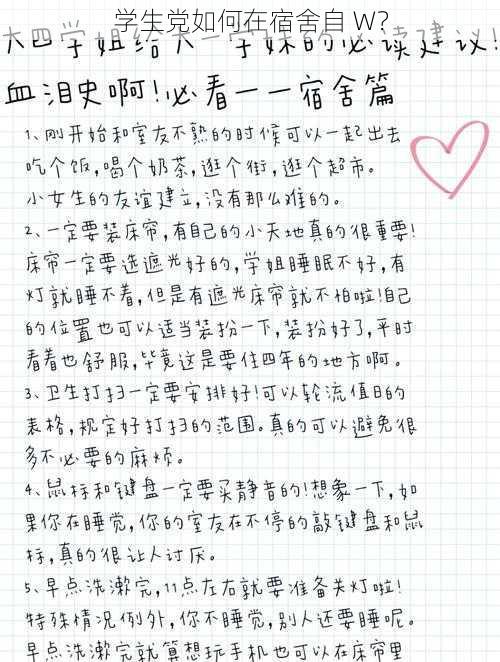 学生党如何在宿舍自 W?
大四学姐给大一学妹的必读建议!
血泪史啊!必看一一宿舍篇
1、刚开始和室友不熟的时候可以一起出去
吃个饭,喝个奶茶,逛个街,逛个超市。
小女生的友谊建立,没有那么难的。
2、一定要装床帘,有自己的小天地真的很重要!
床帘一定要选遮光好的,学姐睡眠不好,有
灯就睡不着,但是有遮光床帘就不怕啦!自己
的位置也可以适当装扮一下,装扮好了,平时
看着也舒服,毕竟这是要住四年的地方啊。
3、卫生打扫一定要安排好!可以轮流值日的
表格,规定好打扫的范围。真的可以避免很
多不必要的麻烦。
4、鼠标和键盘一定要买静音的!想象一下,如
果你在睡觉,你的室友在不停的敲键盘和鼠
标,真的很让人讨厌。
5、早点洗漱完,11点左右就要准备关灯啦!
特殊情况例外,你不睡觉,别人还要睡呢。
早点洗漱完就算想玩手机也可以在床帘里